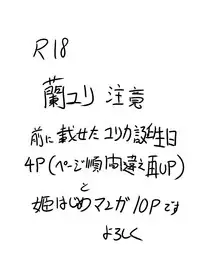 R18
蘭ユリ 注意
前に載せたユリカ誕生日
4P(ページ順間違え再UP)
と
姫はじめマンガ10Pです
よろしく